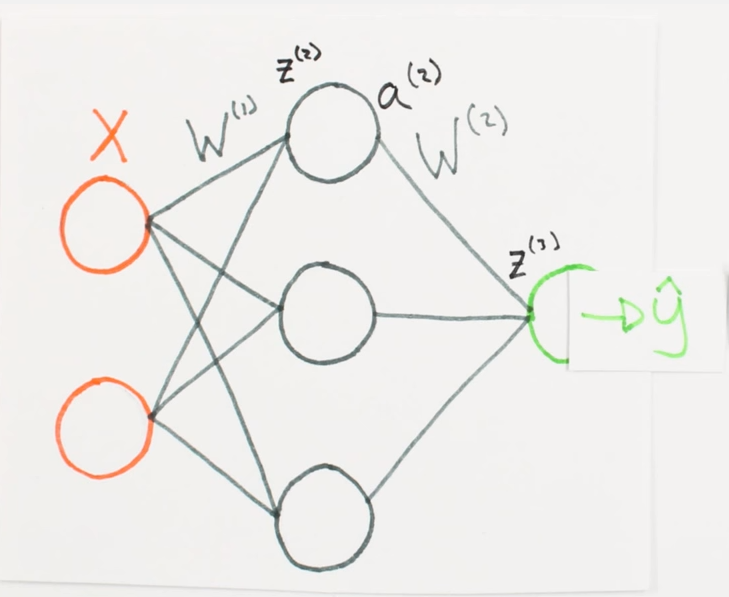 X
W⁽¹⁾
z⁽²⁾
a⁽²⁾
W⁽²⁾
z⁽³⁾
→ ŷ